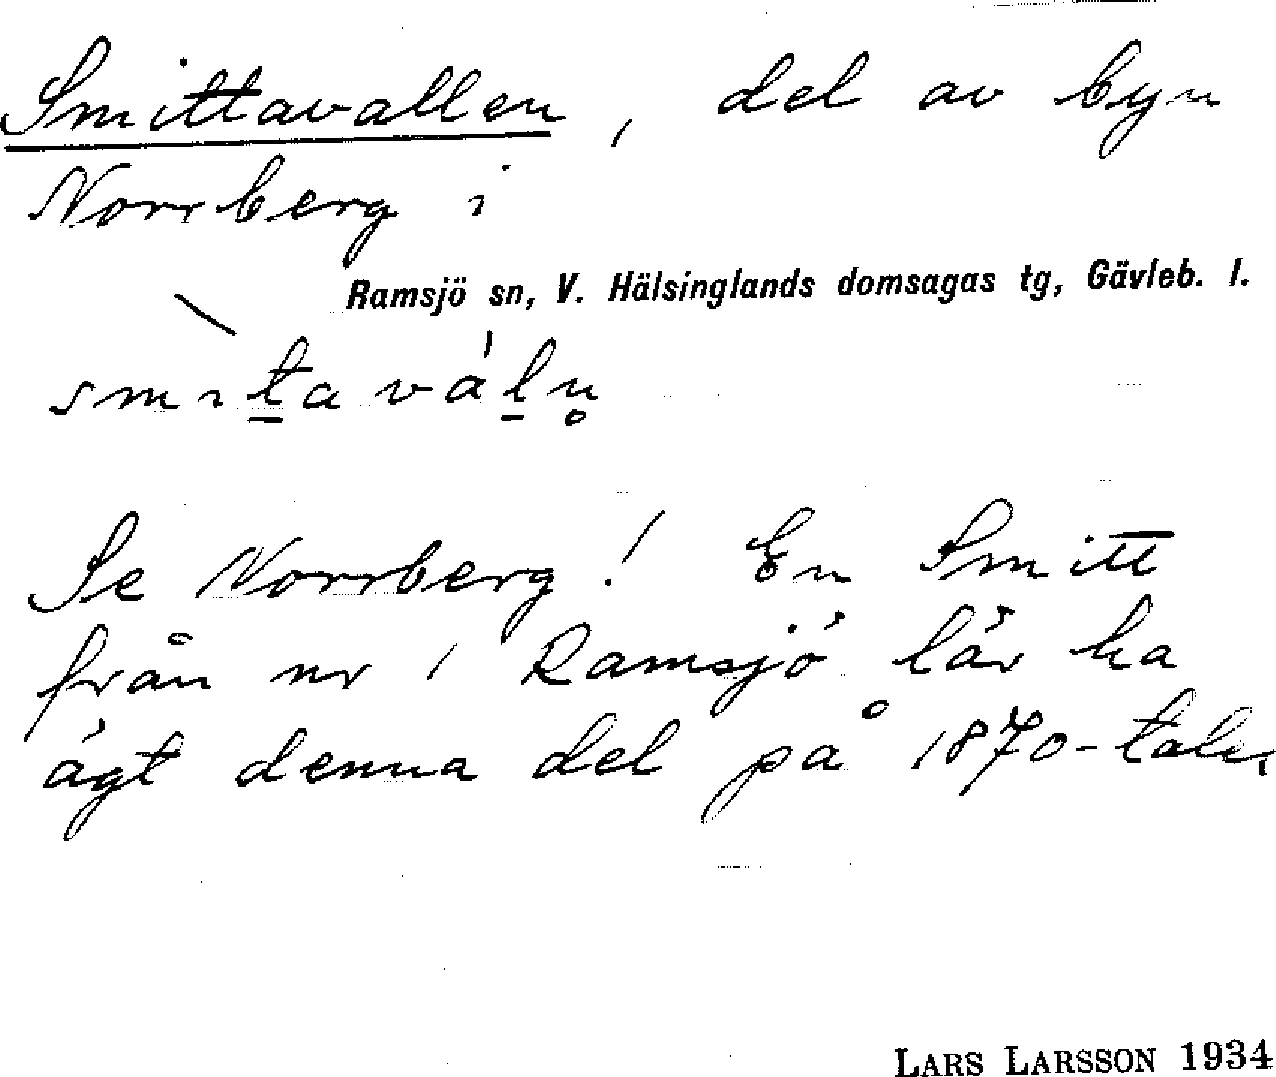 Smittavallen, del av byn
Norrberg i
Ramsjö sn, V. Hälsinglands domsagas tg, Gävleb. l.
smı̀t̲avál̲n̥
Se Norrberg! En Smitt
från nr 1 Ramsjö lär ha
ägt denna del på 1870-talet
LARS LARSSON 1934